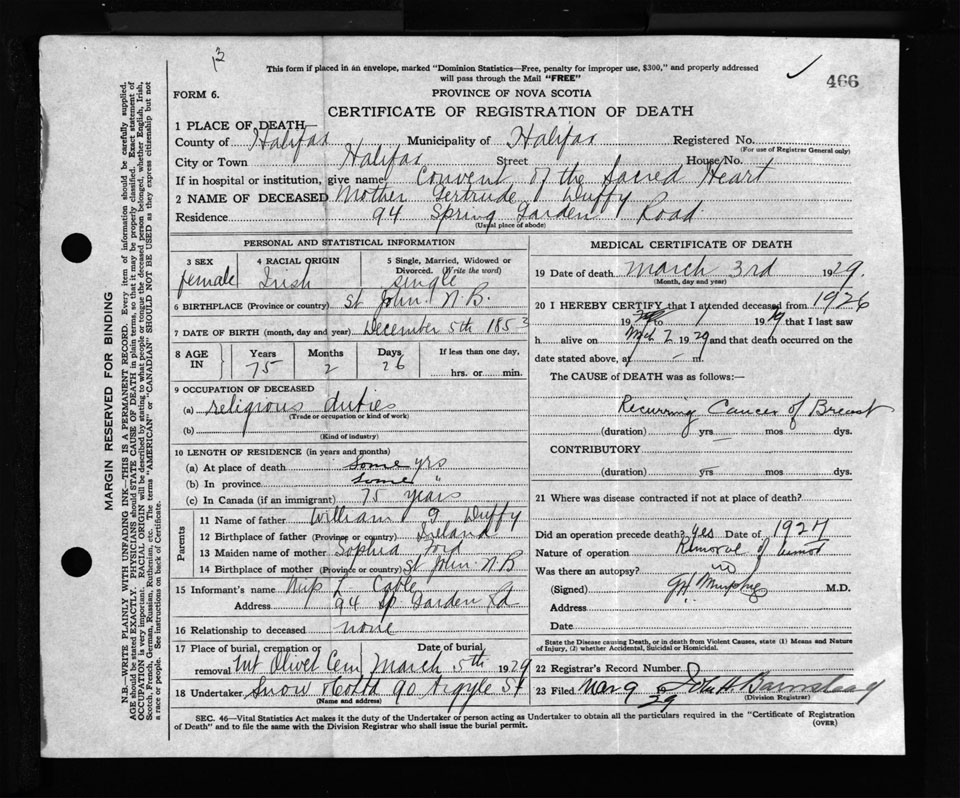 13
This form if placed in an envelope, marked "Dominion Statistics—Free, penalty for improper use, $300," and properly addressed
will pass through the Mail "FREE"
466
FORM 6.
PROVINCE OF NOVA SCOTIA
CERTIFICATE OF REGISTRATION OF DEATH
1 PLACE OF DEATH—
County of Halifax Municipality of Halifax Registered No.
(For use of Registrar General only)
City or Town Halifax Street House No.
If in hospital or institution, give name Convent of the Sacred Heart
2 NAME OF DECEASED Mother Gertrude Duffy
Residence 94 Spring Garden Road
(Usual place of abode)
MARGIN RESERVED FOR BINDING
N.B.—WRITE PLAINLY WITH UNFADING INK—THIS IS A PERMANENT RECORD. Every item of information should be carefully supplied.
AGE should be stated EXACTLY. PHYSICIANS should STATE CAUSE OF DEATH in plain terms, so that it may be properly classified. Exact statement of
OCCUPATION is very important. RACIAL ORIGIN will be described by stating to what people or tongue the deceased person belonged, whether English, Irish,
Scotch, French, German, Russian, Ruthenian, etc. The terms "AMERICAN" or "CANADIAN" SHOULD NOT BE USED as they express citizenship but not
a race or people. See instructions on back of Certificate.
PERSONAL AND STATISTICAL INFORMATION
3 SEX
female
4 RACIAL ORIGIN
Irish
5 Single, Married, Widowed or
Divorced. (Write the word)
single
6 BIRTHPLACE (Province or country) St John. N.B.
7 DATE OF BIRTH (month, day and year) December 5th 1853
8 AGE
IN
Years
75
Months
2
Days
26
If less than one day,
hrs. or min.
9 OCCUPATION OF DECEASED
(a) religious duties
(Trade or occupation or kind of work)
(b)
(Kind of industry)
10 LENGTH OF RESIDENCE (in years and months)
(a) At place of death some yrs
(b) In province some "
(c) In Canada (if an immigrant) 75 years
Parents
11 Name of father William G Duffy
12 Birthplace of father (Province or country) Ireland
13 Maiden name of mother Sophia Ford
14 Birthplace of mother (Province or country) St John N.B
15 Informant's name L Cable
Address 94 Sp Garden Rd
16 Relationship to deceased none
17 Place of burial, cremation or
removal Mt Olivet Cem
Date of burial
March 5th 1929
18 Undertaker Snow & Co Ltd 90 Argyle St
(Name and address)
MEDICAL CERTIFICATE OF DEATH
19 Date of death March 3rd 1929.
(Month, day and year)
20 I HEREBY CERTIFY that I attended deceased from 1926
19 to 1929 that I last saw
h alive on Mch 2 1929 and that death occurred on the
date stated above, at — m.
The CAUSE of DEATH was as follows:—
Recurring Cancer of Breast
(duration) yrs mos dys.
CONTRIBUTORY
(duration) yrs mos dys.
21 Where was disease contracted if not at place of death?
Did an operation precede death? yes Date of 1927
Nature of operation Removal of tumor
Was there an autopsy? no
(Signed) G H Murphy M.D.
Address
Date
State the Disease causing Death, or in death from Violent Causes, state (1) Means and Nature
of Injury, (2) whether Accidental, Suicidal or Homicidal.
22 Registrar's Record Number
23 Filed Mar 9 29 John H Barnstead
(Division Registrar)
SEC. 46—Vital Statistics Act makes it the duty of the Undertaker or person acting as Undertaker to obtain all the particulars required in the "Certificate of Registration
of Death" and to file the same with the Division Registrar who shall issue the burial permit.
(OVER)